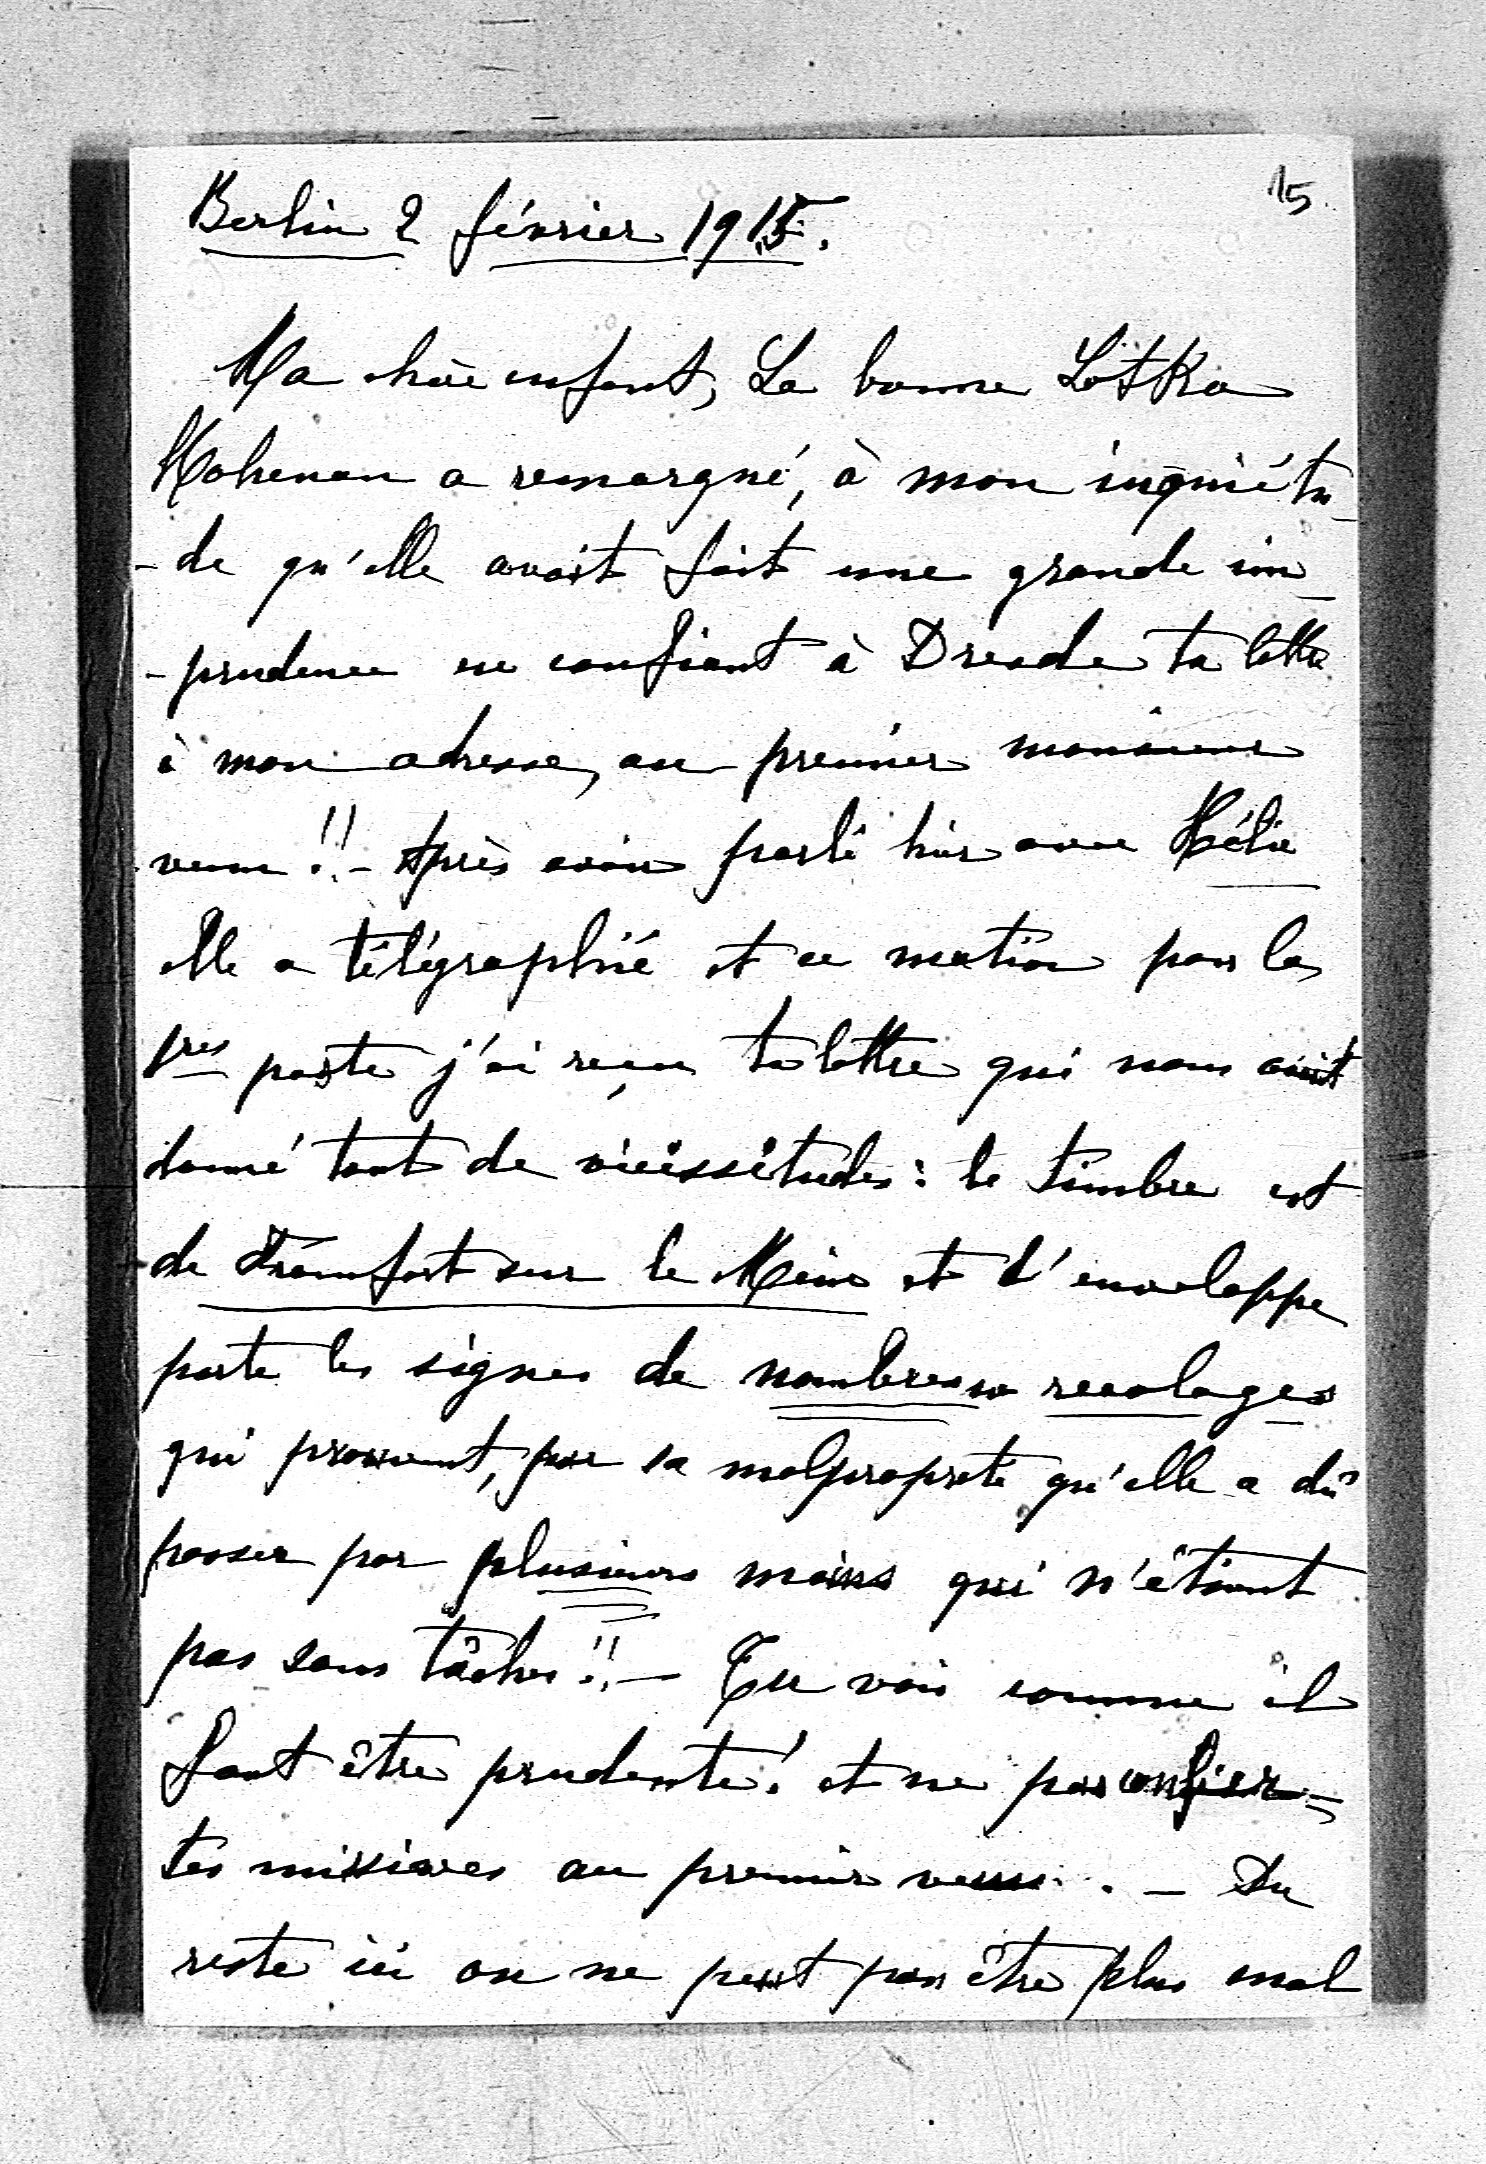 15
Berlin 2 février 1915.
Ma chère enfant, La bonne Lotka
a remarqué, à mon inquiétu
-de qu'elle avait fait une grande im
-prudence en confiant à Dresde ta lettre
à mon adresse, au premier monsieur
venu !! - Après avoir parlé hier avec Hélie
elle a télégraphié et ce matin par la
1res poste j'ai reçu ta lettre qui nous avait
donné tant de vicissitudes : le timbre est
de Francfort sur le Mein et l'enveloppe
porte les signes de nombreux recolages
qui prouvent, par sa malpropreté qu'elle a dû
passer par plusieurs mains qui n'étaient
pas sans tâches !! - Tu vois comme il
faut être prudente ! et ne pas confier
tes missives au premier venu. - Du
reste ici on ne peut pas être plus mal